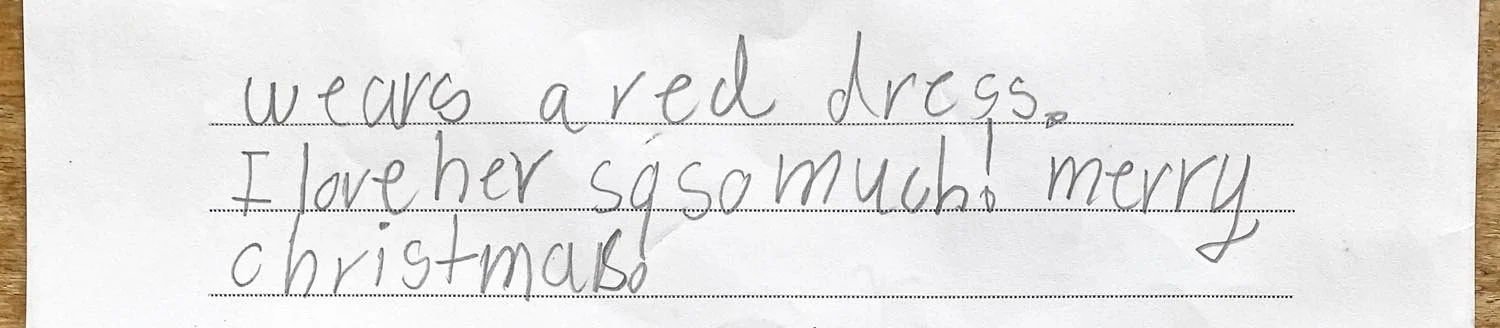 wears a red dress.
I love her so so much! merry
christmas!